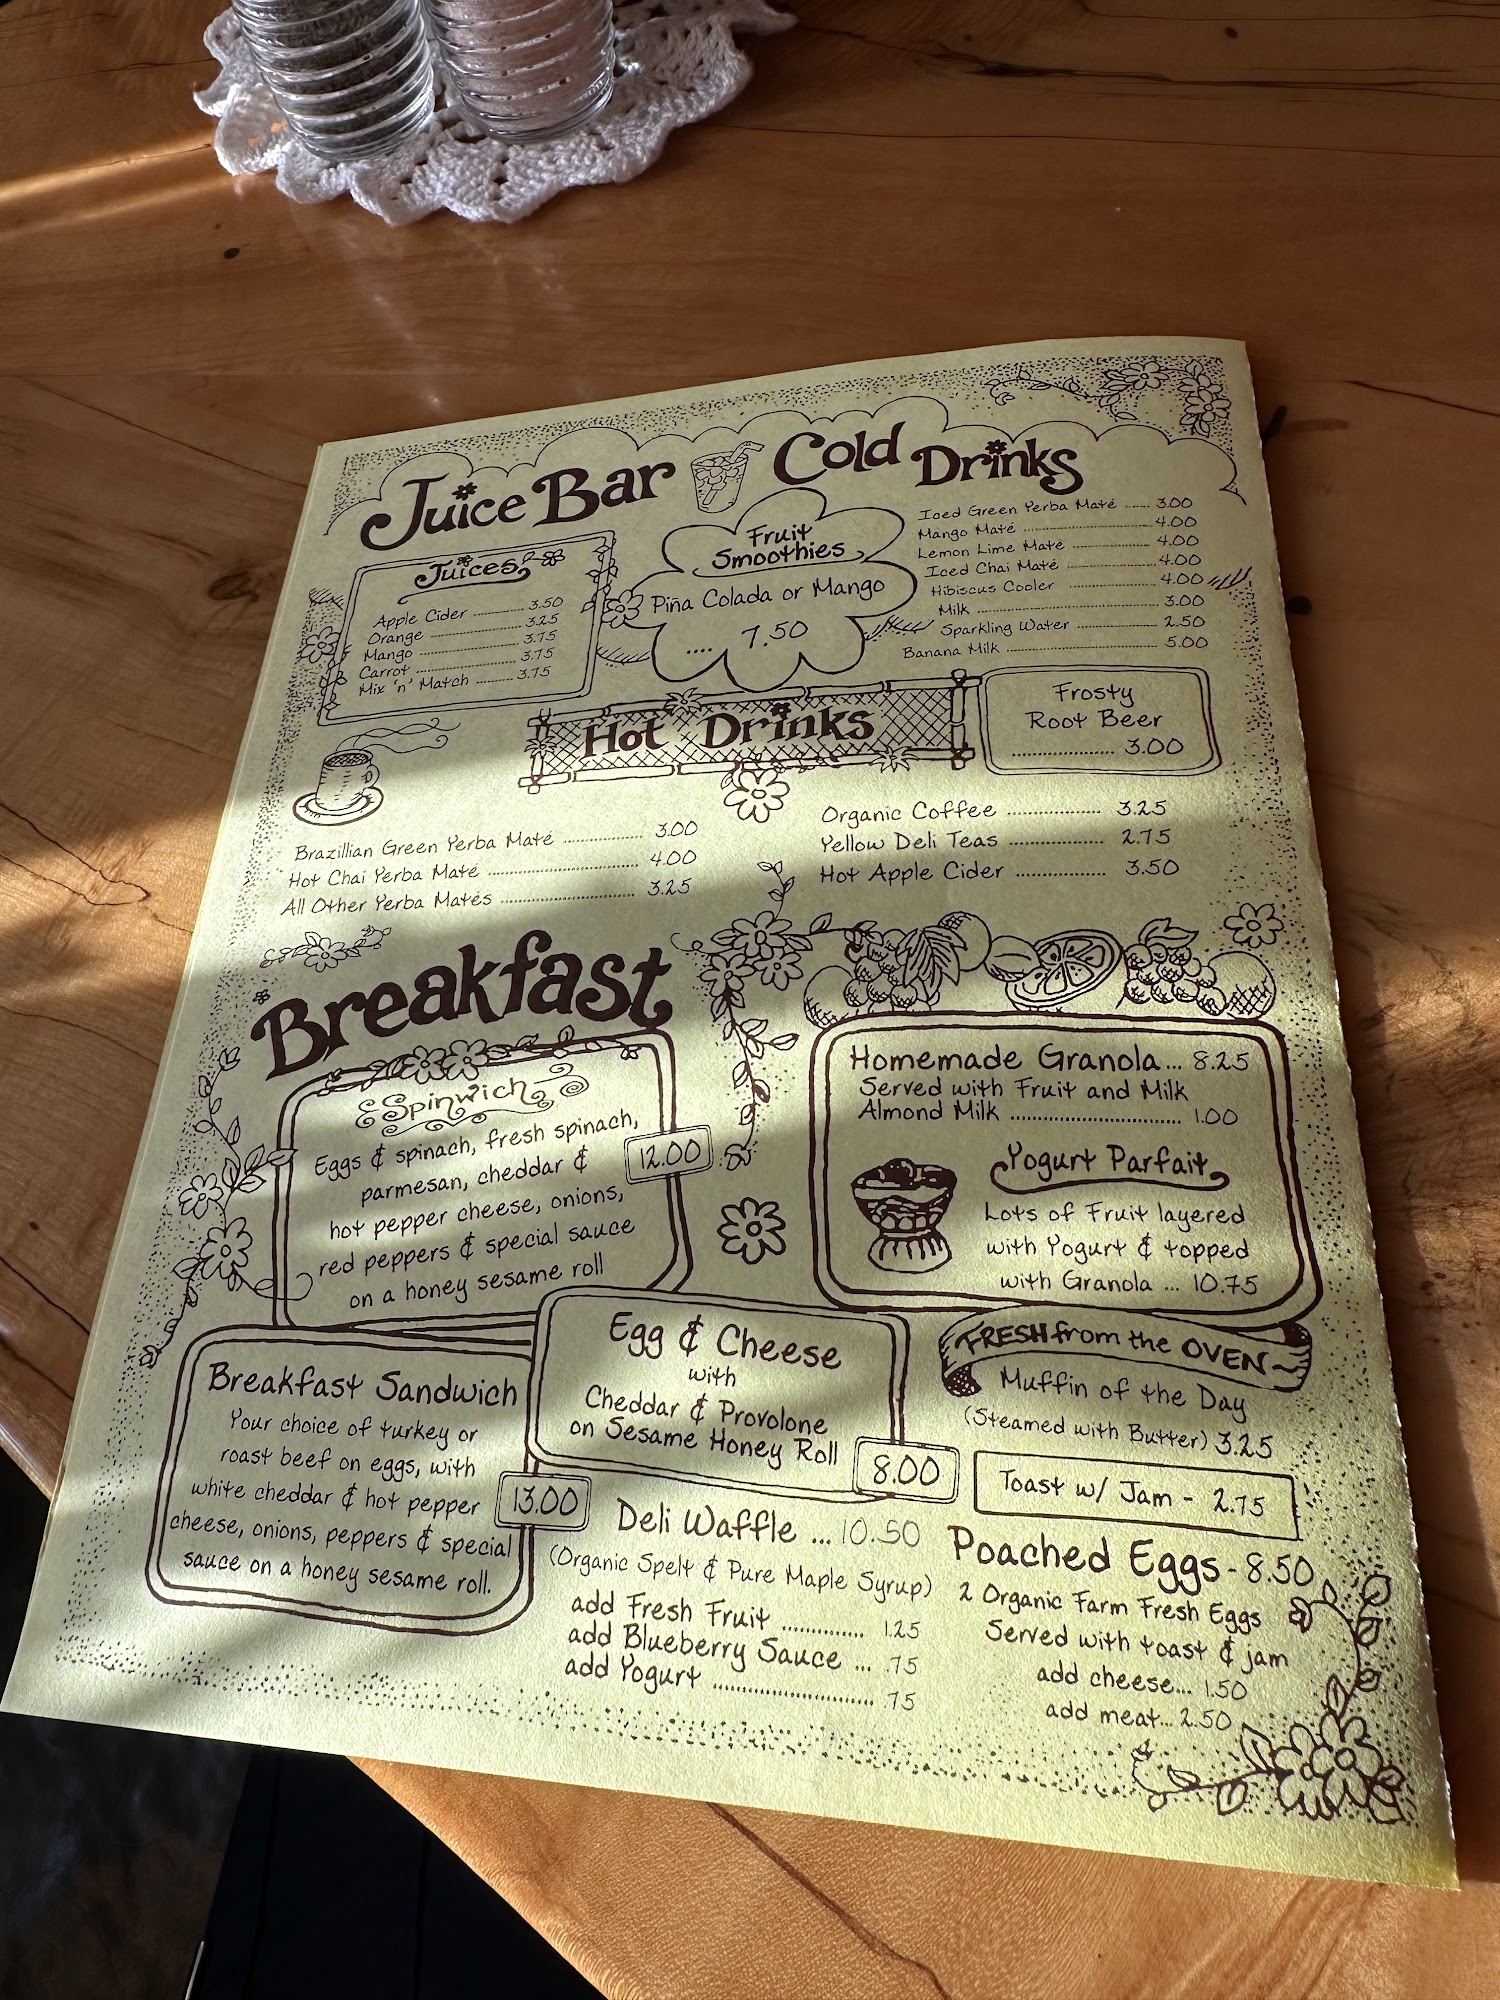 Juice Bar
Juices
Apple Cider ........ 3.50
Orange ........ 3.25
Mango ........ 3.75
Carrot ........ 3.75
Mix 'n' Match ........ 3.75
Fruit
Smoothies
Piña Colada or Mango
.... 7.50
Cold Drinks
Iced Green Yerba Maté ..... 3.00
Mango Maté ........ 4.00
Lemon Lime Maté ........ 4.00
Iced Chai Maté ........ 4.00
Hibiscus Cooler ........ 4.00
Milk ........ 3.00
Sparkling Water ........ 2.50
Banana Milk ........ 5.00
Frosty
Root Beer
........ 3.00
Hot Drinks
Brazillian Green Yerba Maté ........ 3.00
Hot Chai Yerba Maté ........ 4.00
All Other Yerba Matés ........ 3.25
Organic Coffee ........ 3.25
Yellow Deli Teas ........ 2.75
Hot Apple Cider ........ 3.50
Breakfast
Spinwich
Eggs & spinach, fresh spinach,
parmesan, cheddar &
hot pepper cheese, onions,
red peppers & special sauce
on a honey sesame roll
12.00
Homemade Granola... 8.25
Served with Fruit and Milk
Almond Milk ........ 1.00
Yogurt Parfait
Lots of Fruit layered
with Yogurt & topped
with Granola ... 10.75
Breakfast Sandwich
Your choice of turkey or
roast beef on eggs, with
white cheddar & hot pepper
cheese, onions, peppers & special
sauce on a honey sesame roll.
13.00
Egg & Cheese
with
Cheddar & Provolone
on Sesame Honey Roll
8.00
Deli Waffle ... 10.50
(Organic Spelt & Pure Maple Syrup)
add Fresh Fruit ........ 1.25
add Blueberry Sauce ... .75
add Yogurt ........ .75
FRESH from the OVEN
Muffin of the Day
(Steamed with Butter) 3.25
Toast w/ Jam - 2.75
Poached Eggs - 8.50
2 Organic Farm Fresh Eggs
Served with toast & jam
add cheese... 1.50
add meat... 2.50